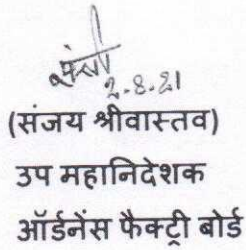 2.8.21
(संजय श्रीवास्तव)
उप महानिदेशक
ऑर्डनेंस फैक्ट्री बोर्ड